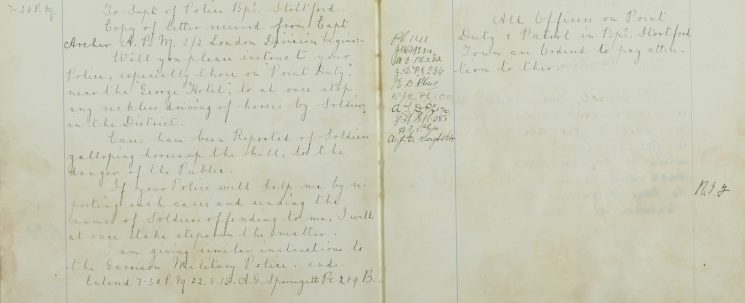 7-30 P.M.
To Supt of Police Bp's. Stortford.
Copy of letter received from Capt
Archer A.P.M. 2/2 London Division begins-
Will you please instruct your
Police, especially those on "Point Duty"
near the George Hotel", to at once stop
any reckless driving of horses by Soldiers
in the District.
Cases have been Reported of Soldiers
galloping horses up the hill, to the
danger of the Public.
If your Police will help me by re-
porting such cases and sending the
names of Soldiers offending to me, I will
at once take steps in the matter.
I am giving similar instructions to
the Garrison Military Police. ends.
Entered 7-30 P.M. 22.5.15. A.G. Springett Pc 289 B.
All Officers on Point
Duty & Patrol in Bp's. Stortford
Town are ordered to pay atten-
tion to this.